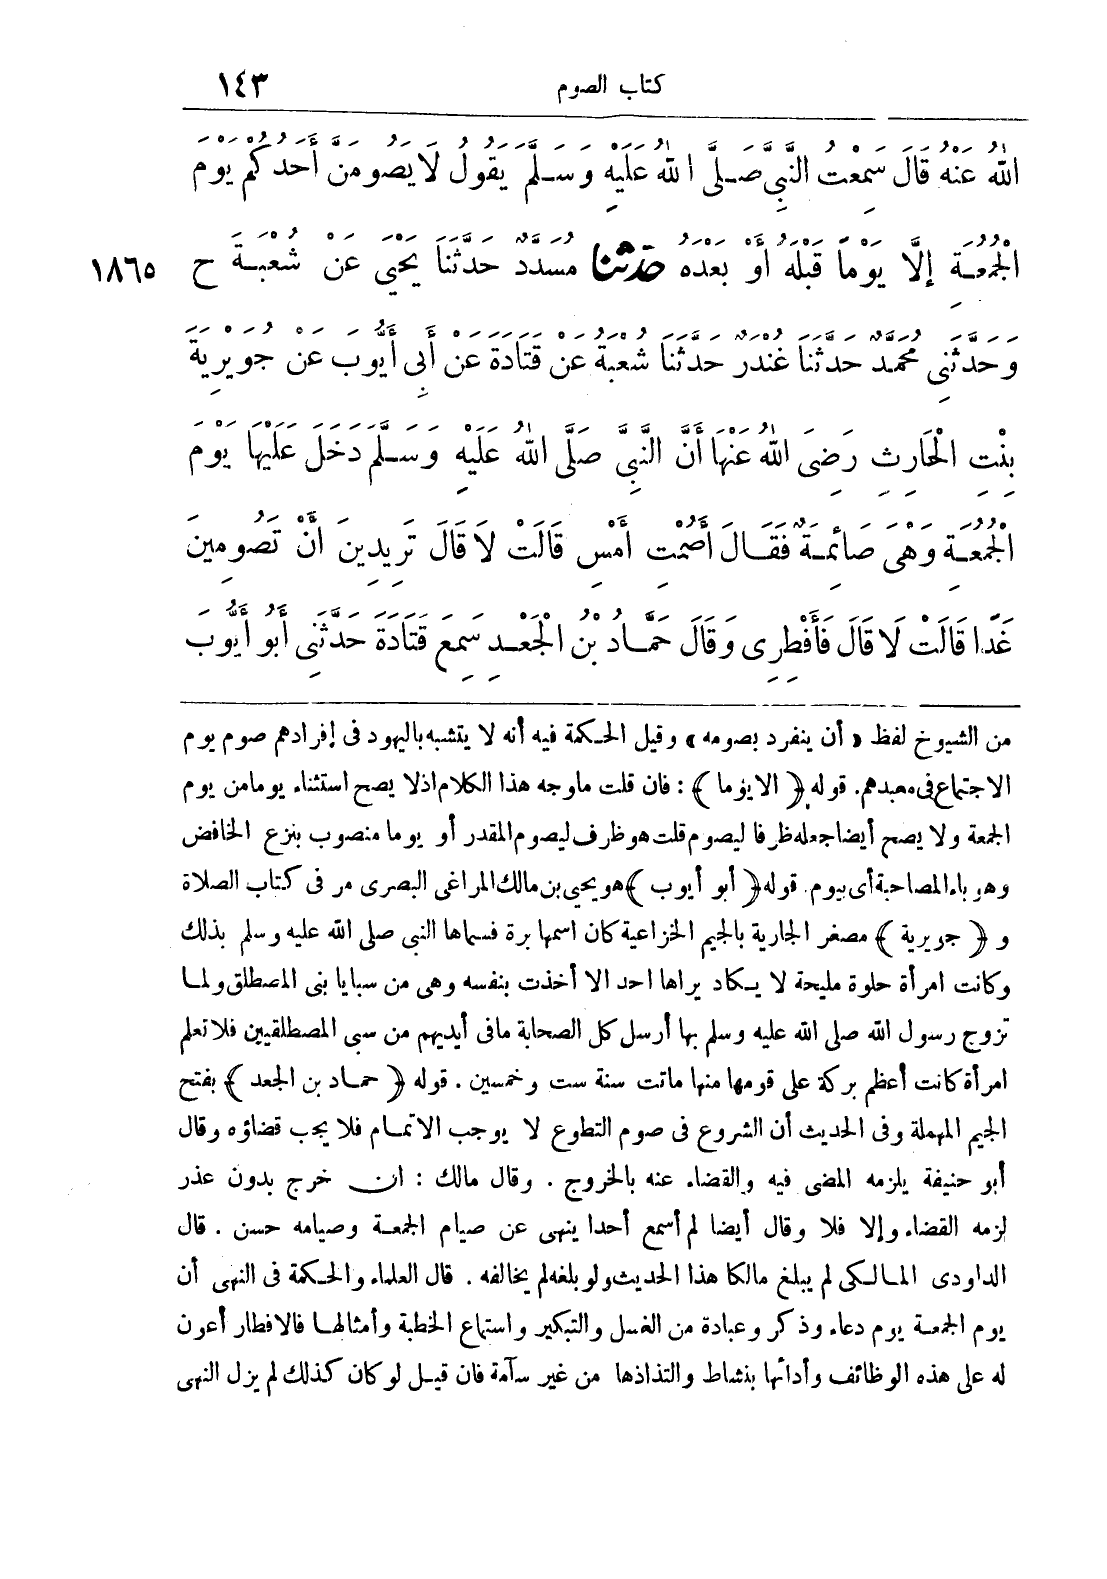 كتاب الصوم ١٤٣
اللهُ عَنْهُ قَالَ سَمِعْتُ النَّبِيَّ صَلَّى اللهُ عَلَيْهِ وَسَلَّمَ يَقُولُ لَا يَصُومَنَّ أَحَدُكُمْ يَوْمَ
الْجُمُعَةِ إِلَّا يَوْمًا قَبْلَهُ أَوْ بَعْدَهُ حَدَّثَنَا مُسَدَّدٌ حَدَّثَنَا يَحْيَى عَنْ شُعْبَةَ ح ١٨٦٥
وَحَدَّثَنِى مُحَمَّدٌ حَدَّثَنَا غُنْدَرٌ حَدَّثَنَا شُعْبَةُ عَنْ قَتَادَةَ عَنْ أَبِى أَيُّوبَ عَنْ جُوَيْرِيَةَ
بِنْتِ الْحَارِثِ رَضِىَ اللهُ عَنْهَا أَنَّ النَّبِيَّ صَلَّى اللهُ عَلَيْهِ وَسَلَّمَ دَخَلَ عَلَيْهَا يَوْمَ
الْجُمُعَةِ وَهْىَ صَائِمَةٌ فَقَالَ أَصُمْتِ أَمْسِ قَالَتْ لَا قَالَ تَرِيدِينَ أَنْ تَصُومِينَ
غَدًا قَالَتْ لَا قَالَ فَأَفْطِرِى وَقَالَ حَمَّادُ بْنُ الْجَعْدِ سَمِعَ قَتَادَةَ حَدَّثَنِى أَبُو أَيُّوبَ
من الشيوخ لفظ «أن ينفرد بصومه» وقيل الحكمة فيه أنه لا يتشبه باليهود فى إفرادهم صوم يوم
الاجتماع فى معبدهم. قوله (الا يوما): فان قلت ما وجه هذا الكلام اذ لا يصح استثناء يوما من يوم
الجمعة ولا يصح أيضا جعله ظرفا ليصوم قلت هو ظرف ليصوم المقدر أو يوما منصوب بنزع الخافض
وهو باء المصاحبة أى بيوم. قوله (أبو أيوب) هو يحيى بن مالك المراغى البصرى مر فى كتاب الصلاة
و (جويرية) مصغر الجارية بالجيم الخزاعية كان اسمها برة فسماها النبى صلى الله عليه وسلم بذلك
وكانت امرأة حلوة مليحة لا يكاد يراها احد الا أخذت بنفسه وهى من سبايا بنى المصطلق ولما
تزوج رسول الله صلى الله عليه وسلم بها أرسل كل الصحابة ما فى أيديهم من سبى المصطلقيين فلا تعلم
امرأة كانت أعظم بركة على قومها منها ماتت سنة ست وخمسين. قوله (حماد بن الجعد) بفتح
الجيم المهملة وفى الحديث أن الشروع فى صوم التطوع لا يوجب الاتمام فلا يجب قضاؤه وقال
أبو حنيفة يلزمه المضى فيه والقضاء عنه بالخروج. وقال مالك: ان خرج بدون عذر
لزمه القضاء وإلا فلا وقال أيضا لم أسمع أحدا ينهى عن صيام الجمعة وصيامه حسن. قال
الداودى المالكى لم يبلغ مالكا هذا الحديث ولو بلغه لم يخالفه. قال العلماء والحكمة فى النهى أن
يوم الجمعة يوم دعاء وذكر وعبادة من الغسل والتبكير واستماع الخطبة وأمثالها فالافطار أعون
له على هذه الوظائف وأدائها بنشاط والتذاذها من غير سآمة فان قيل لو كان كذلك لم يزل النهى